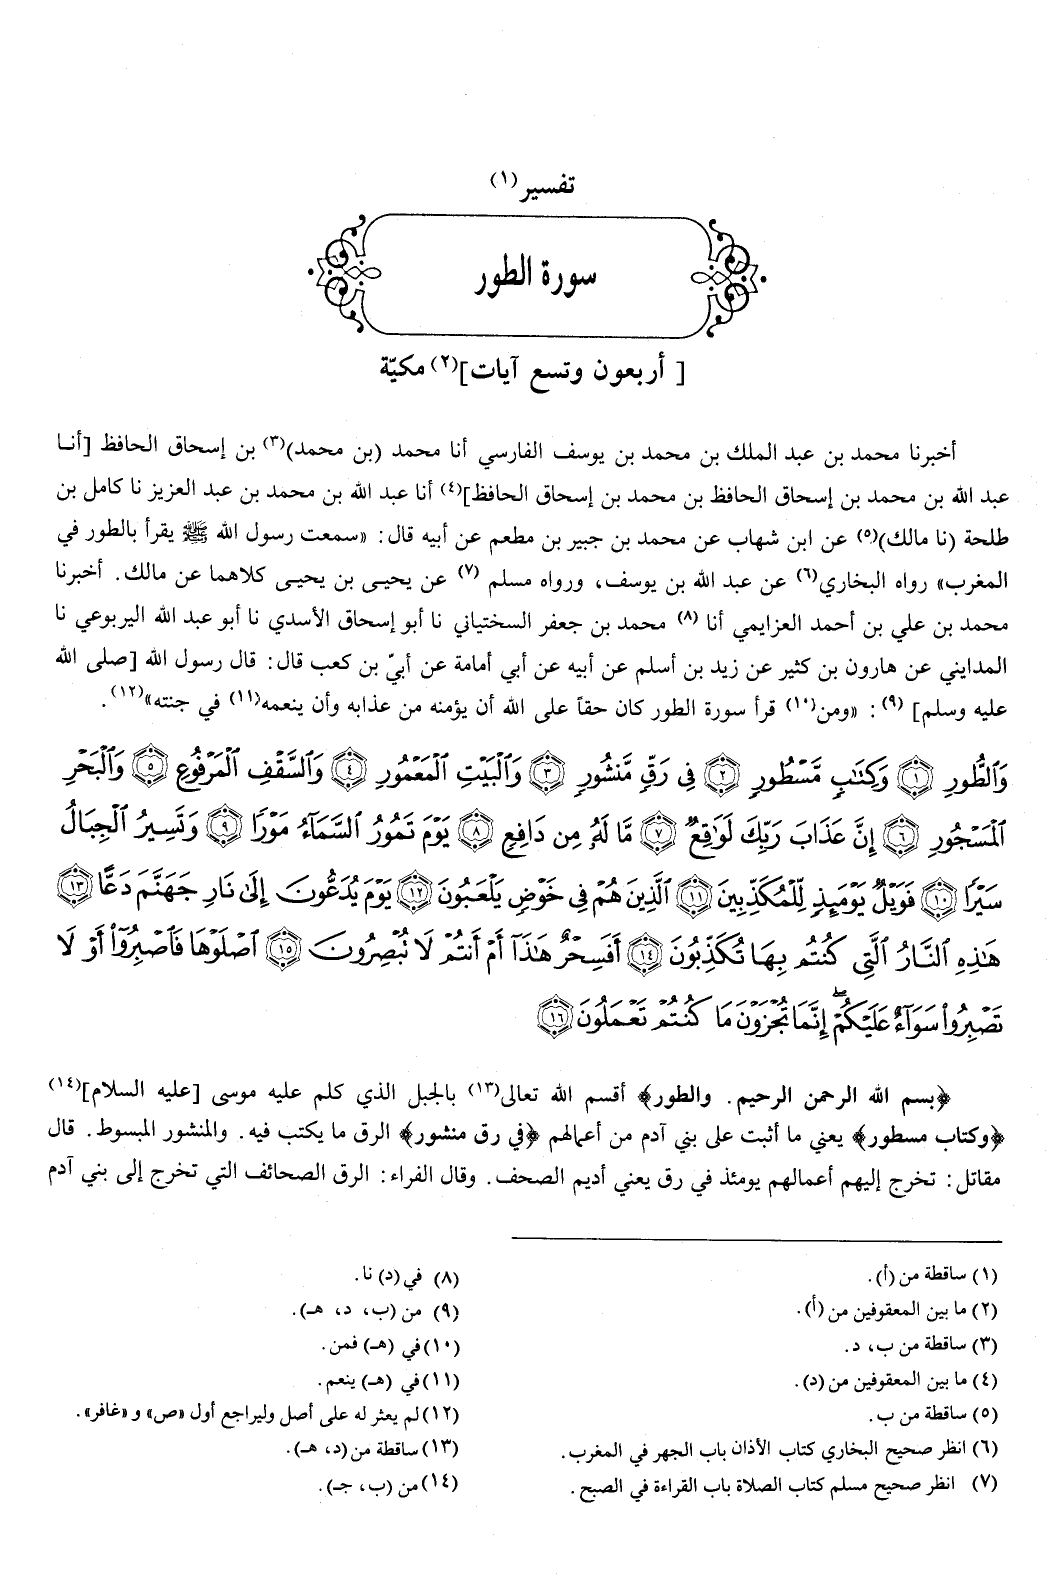 تفسير(١)
سورة الطور
[ أربعون وتسع آيات](٢) مكيّة
أخبرنا محمد بن عبد الملك بن محمد بن يوسف الفارسي أنا محمد (بن محمد)(٣) بن إسحاق الحافظ [أنا
عبد الله بن محمد بن إسحاق الحافظ بن محمد بن إسحاق الحافظ](٤) أنا عبد الله بن محمد بن عبد العزيز نا كامل بن
طلحة (نا مالك)(٥) عن ابن شهاب عن محمد بن جبير بن مطعم عن أبيه قال: «سمعت رسول الله ﷺ يقرأ بالطور في
المغرب» رواه البخاري(٦) عن عبد الله بن يوسف، ورواه مسلم (٧) عن يحيى بن يحيى كلاهما عن مالك. أخبرنا
محمد بن علي بن أحمد العزايمي أنا (٨) محمد بن جعفر السختياني نا أبو إسحاق الأسدي نا أبو عبد الله اليربوعي نا
المدايني عن هارون بن كثير عن زيد بن أسلم عن أبيه عن أبي أمامة عن أبيّ بن كعب قال: قال رسول الله [صلى الله
عليه وسلم] (٩): «ومن(١٠) قرأ سورة الطور كان حقاً على الله أن يؤمنه من عذابه وأن ينعمه(١١) في جنته»(١٢).
وَٱلطُّورِ ۝١ وَكِتَـٰبٍ مَّسْطُورٍ ۝٢ فِى رَقٍّ مَّنشُورٍ ۝٣ وَٱلْبَيْتِ ٱلْمَعْمُورِ ۝٤ وَٱلسَّقْفِ ٱلْمَرْفُوعِ ۝٥ وَٱلْبَحْرِ
ٱلْمَسْجُورِ ۝٦ إِنَّ عَذَابَ رَبِّكَ لَوَٰقِعٌ ۝٧ مَّا لَهُۥ مِن دَافِعٍ ۝٨ يَوْمَ تَمُورُ ٱلسَّمَآءُ مَوْرًا ۝٩ وَتَسِيرُ ٱلْجِبَالُ
سَيْرًا ۝١٠ فَوَيْلٌ يَوْمَئِذٍ لِّلْمُكَذِّبِينَ ۝١١ ٱلَّذِينَ هُمْ فِى خَوْضٍ يَلْعَبُونَ ۝١٢ يَوْمَ يُدَعُّونَ إِلَىٰ نَارِ جَهَنَّمَ دَعًّا ۝١٣
هَـٰذِهِ ٱلنَّارُ ٱلَّتِى كُنتُم بِهَا تُكَذِّبُونَ ۝١٤ أَفَسِحْرٌ هَـٰذَآ أَمْ أَنتُمْ لَا تُبْصِرُونَ ۝١٥ ٱصْلَوْهَا فَٱصْبِرُوٓا۟ أَوْ لَا
تَصْبِرُوا۟ سَوَآءٌ عَلَيْكُمْ ۖ إِنَّمَا تُجْزَوْنَ مَا كُنتُمْ تَعْمَلُونَ ۝١٦
﴿بسم الله الرحمن الرحيم. والطور﴾ أقسم الله تعالى(١٣) بالجبل الذي كلم عليه موسى [عليه السلام](١٤)
﴿وكتاب مسطور﴾ يعني ما أثبت على بني آدم من أعمالهم ﴿في رق منشور﴾ الرق ما يكتب فيه. والمنشور المبسوط. قال
مقاتل: تخرج إليهم أعمالهم يومئذ في رق يعني أديم الصحف. وقال الفراء: الرق الصحائف التي تخرج إلى بني آدم
(١) ساقطة من (أ).
(٢) ما بين المعقوفين من (أ).
(٣) ساقطة من ب، د.
(٤) ما بين المعقوفين من (د).
(٥) ساقطة من ب.
(٦) انظر صحيح البخاري كتاب الأذان باب الجهر في المغرب.
(٧) انظر صحيح مسلم كتاب الصلاة باب القراءة في الصبح.
(٨) في (د) نا.
(٩) من (ب، د، هـ).
(١٠) في (هـ) فمن.
(١١) في (هـ) ينعم.
(١٢) لم يعثر له على أصل وليراجع أول «ص» و «غافر».
(١٣) ساقطة من (د، هـ).
(١٤) من (ب، جـ).